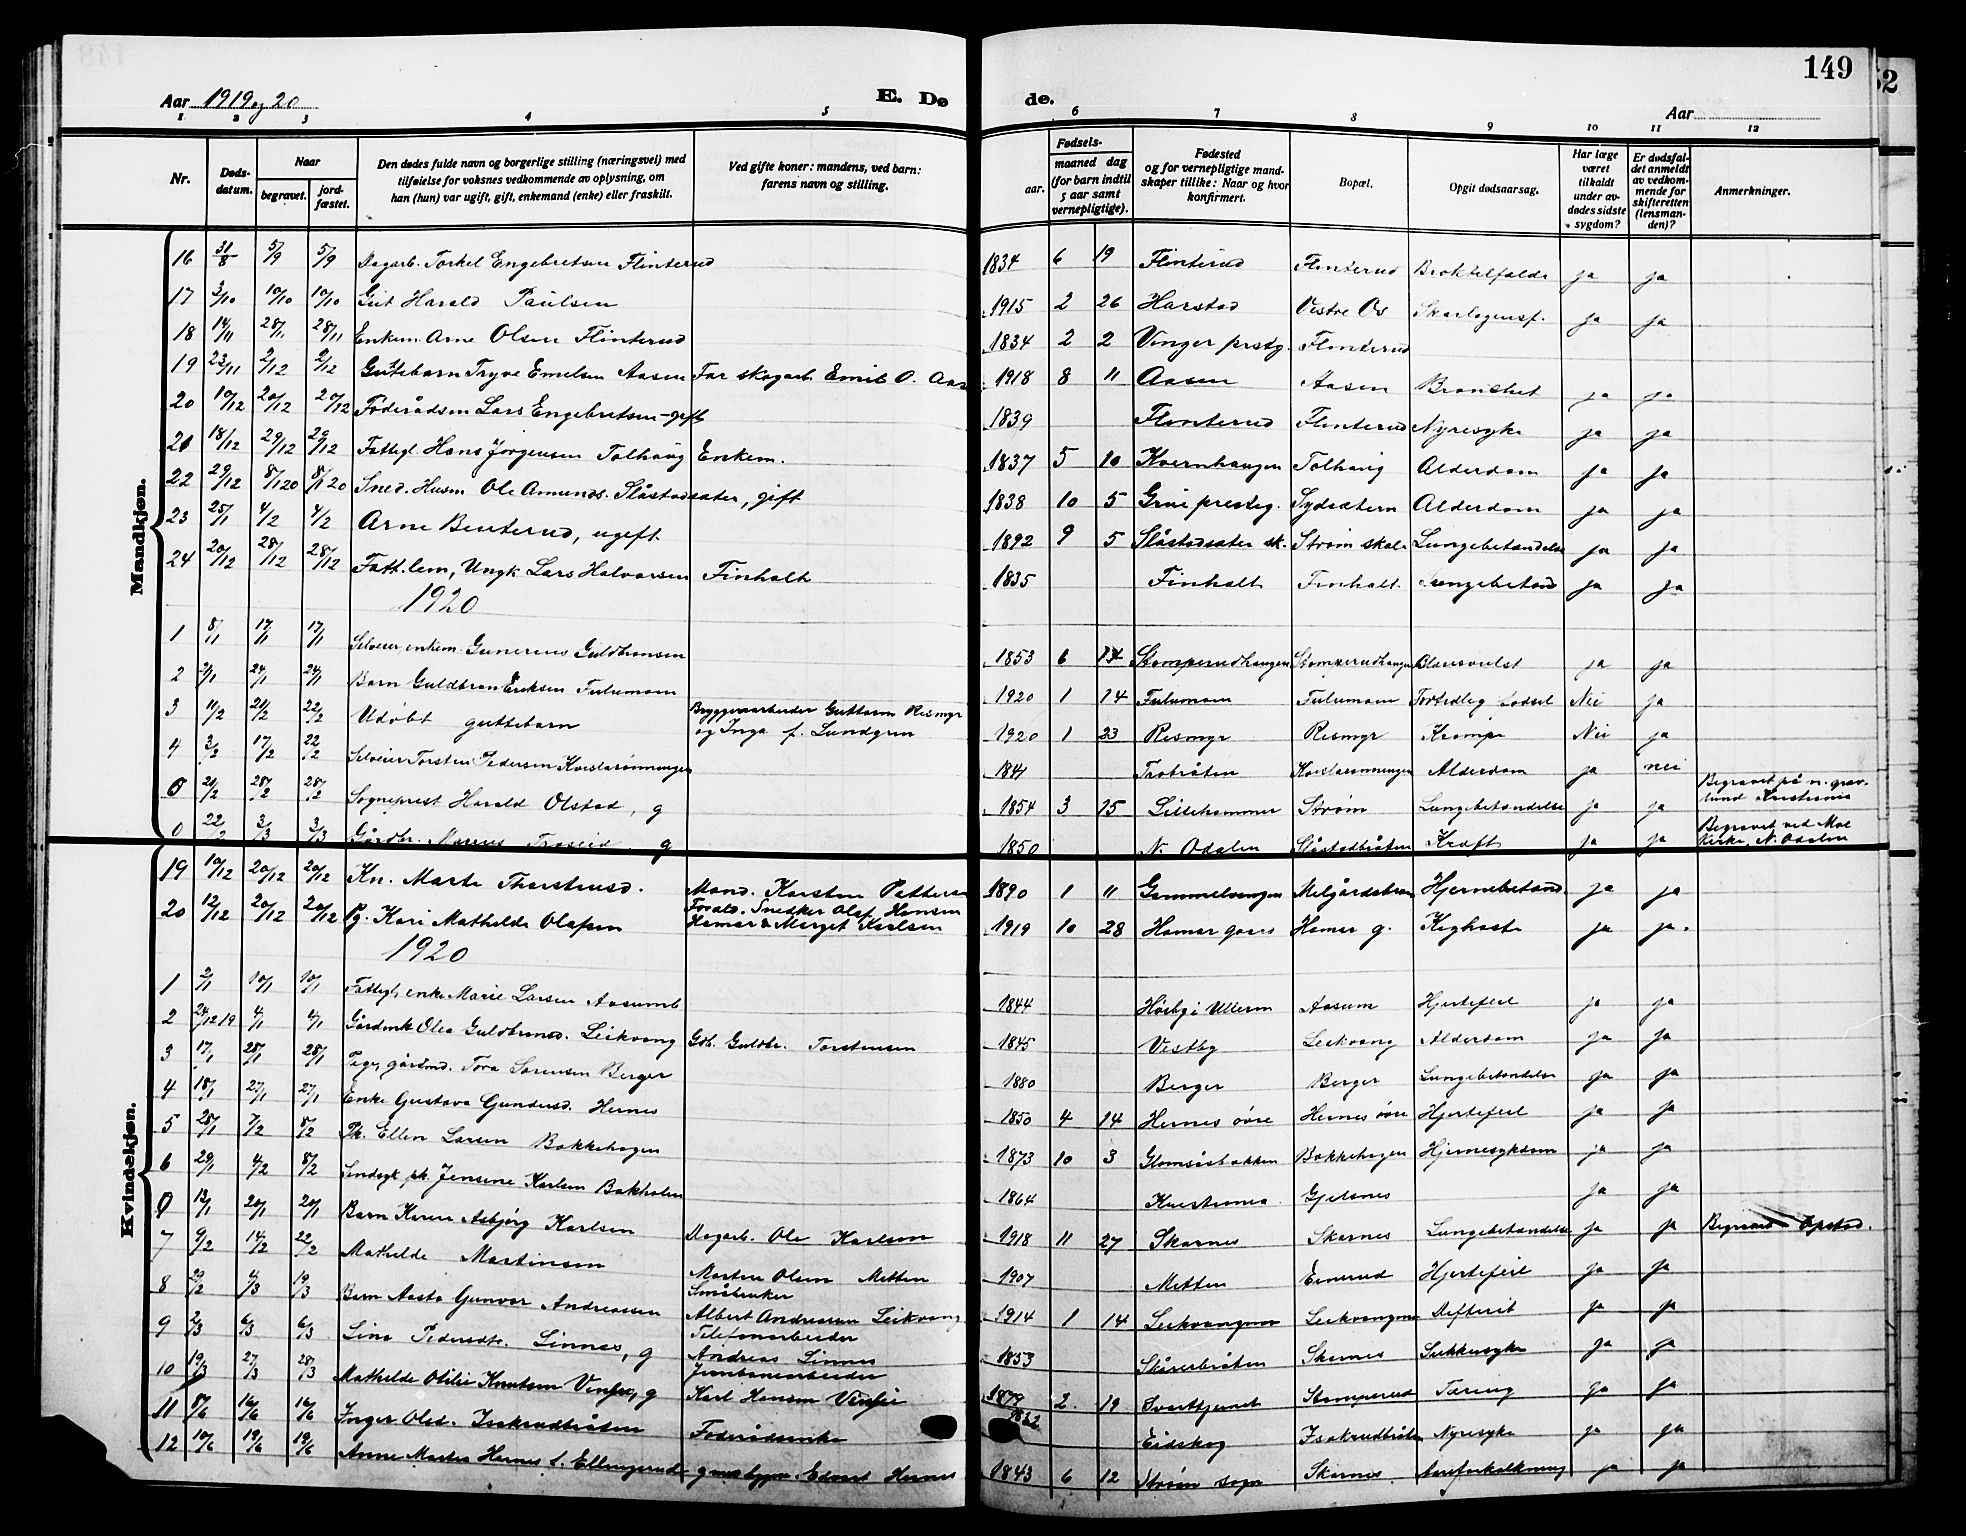 149
Aar 1919 og 20
E. Dø
de.
Aar
1 2 3 4 5 6 7 8 9 10 11 12
Nr.
Døds-datum.
Naar
begravet.
jord-fæstet.
Den dødes fulde navn og borgerlige stilling (næringsvei) med tilføielse for voksnes vedkommende av oplysning, om han (hun) var ugift, gift, enkemand (enke) eller fraskilt.
Ved gifte koner: mandens, ved barn: farens navn og stilling.
Fødsels-
aar.
maaned dag
(for barn indtil 5 aar samt vernepligtige).
Fødested og for vernepligtige mand-skaper tillike: Naar og hvor konfirmert.
Bopæl.
Opgit dødsaarsag.
Har læge været tilkaldt under av-dødes sidste sygdom?
Er dødsfal-det anmeldt av vedkom-mende for skifteretten (lensman-den)?
Anmerkninger.
Mandkjøn.
16 31/8 5/9 5/9 Dagarb. Torkel Engebretsen Flinterud 1834 6 19 Flinterud Flinterud ja ja
17 3/10 10/10 10/10 Gut Harald Paulsen 1915 2 26 Harstad Vestre Os Skarlagensf. ja ja
18 14/11 28/11 28/11 Enkem. Arne Olsen Flinterud 1834 2 2 Vinger prestg. Flinterud
19 23/11 2/12 2/12 Guttebarn Tryve Emelsen Aasen Far skogarb. Emil O. Aas 1918 8 11 Aasen Aasen Bronchit ja ja
20 10/12 20/12 20/12 Føderådsm Lars Engebretsen - gift 1839 Flinterud Flinterud Nyresyke ja ja
21 18/12 29/12 29/12 Fattigl. Hans Jørgensen Tolhaug Enkem. 1837 5 10 Kvernhaugen Tolhaug Alderdom ja ja
22 29/12 8/1 20 8/1 20 Sned. Husm Ole Amunds. Slåstadsæter, gift 1838 10 5 Grue presteg. Sydsætern Alderdom ja ja
23 25/1 4/2 4/2 Arne Benterud, ugift 1892 9 5 Slåstadsæter sk. Strøm skole Lungebetændelse ja ja
24 20/12 28/12 28/12 Fatt.lem, Ungk Lars Halvorsen Finholt 1835 Finholt Finholt Lungebetænd ja ja
1920
1 8/1 17/1 17/1 Selveier, enkem. Gunerius Guldbransen 1853 6 Stomperudhaugen Stomperudhaugen ja ja
2 24/1 24/1 Barn Guldbran Eriksen Fulumoen 1920 1 14 Fulumoen Fulumoen Fortidlig fødsel Nei ja
3 11/2 21/2 22/2 Udøbt guttebarn Bryggeriarbeider Guttorm Rismyr
og Inga f. Lundgren 1920 1 23 Rismyr Rismyr Krampe Nei ja
4 3/2 17/2 22/2 Selveier Torsten Pedersen 1841 Alderdom ja nei
0 21/2 28/2 28/2 Sogneprest Harald Olstad, g 1854 3 15 Lillehammer Strøm Lungebetændelse ja ja Begravet på n. grav-
lund Kristiania
0 22/2 3/3 3/3 Gårdbr. g 1850 N. Odalen Slåstadbråten Kræft ja ja Begravet ved Mo
kirke, N. Odalen
Kvindekjøn.
19 10/12 20/12 20/12 Kn. Marte Thorstrud. Mand. Karsten 1890 1 11 Gammelvangen Hjernebetænd. ja ja
20 12/12 20/12 20/12 Pg. Kari Mathilde Olafsen Foræld. Snedker Olaf Hansen
Hamar & Marget Karlsen 1919 10 28 Hamar gaard Hamar g. Kighoste ja ja.
1920
1 2/1 10/1 10/1 Fattigl. enke Marie Larsen 1844 Aasum Hjertefeil ja ja
2 24/12 19 4/1 4/1 Olea Guldbrands. Leikvang Gdb. Guldbr. Torstensen 1845 Vestby Leikvang Alderdom ja ja
3 17/1 28/1 28/1 Pige, gårdmd. Tora Sørensen Berger 1880 Berger Berger Lungebetændelse ja ja
4 18/1 27/1 27/1 Enke Gustava Gundersd. Hernes 1850 4 14 Hernes øvre Hernes øvre Hjertefeil ja ja
5 28/1 7/2 8/2 Pk. Ellen Larsen Bakkehagen 1873 10 3 Glomsåsbakken Bakkehagen Hjernesykdom ja ja
6 29/1 4/2 8/2 Sindsyk pk. Jensine Karlsen Bakholen 1864 Kristiania Gjelsnes ja ja
0 13/1 20/1 20/1 Barn Karen Asbjørg Karlsen Dagarb. Ole Karlson 1918 11 27 Skarnes Skarnes Lungebetændelse ja ja Begravet Opstad.
7 9/2 14/2 22/2 Mathilde Martinsen Morten Olsen Metten
Småbruker 1907 Metten Hjertefeil ja ja
8 29/2 4/3 19/3 Barn Aasta Gunvor Andreassen Albert Andreassen Leikvang
Telefonarbeider 1914 1 14 Leikvangmo Leikvangmo Difterit ja ja
9 2/3 6/3 6/3 Lina Pedersdtr. Linnes, g Andreas Linnes
Jernbanearbeider 1853 Skårerbråten Skarnes Sukkersyke ja ja
10 19/3 27/3 28/3 Mathilde Otilie Knutsen g Karl Hansen 1879 2 19 Svarttjernet Stomperud Tæring ja ja
11 8/6 16/6 16/6 Inger Olsd. Isakrudbråten Føderådsenke 1832 Eidskog Isakrudbråten Nyresyke ja ja
12 10/6 19/6 19/6 Anne Marten Hernes f. Ellingsrud Edvart Hernes 1843 6 12 Strøm sogn Skarnes Aareforkalkning ja ja